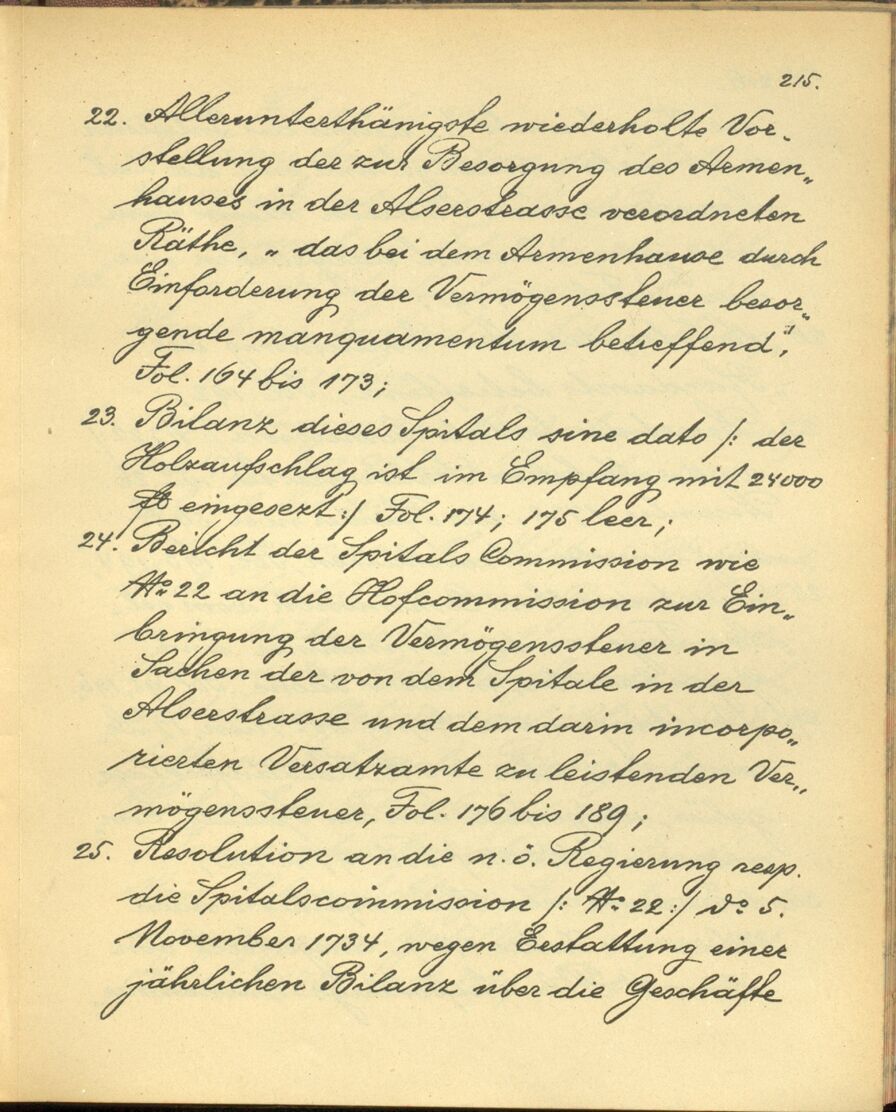 215.
22. Allerunterthänigste wiederholte Vor-
stellung der zur Besorgung des Armen„
hauses in der Alserstrasse verordneten
Räthe, „ das bei dem Armenhause durch
Einforderung der Vermögenssteuer besor„
gende manquamentum betreffend",
Fol. 164 bis 173;
23. Bilanz dieses Spitals sine dato /: der
Holzaufschlag ist im Empfang mit 24000
fl eingesezt :/ Fol. 174; 175 leer;
24. Bericht der Spitals Commission wie
No 22 an die Hofcommission zur Ein„
bringung der Vermögenssteuer in
Sachen der von dem Spitale in der
Alserstrasse und dem darin incorpo„
rierten Versatzamte zu leistenden Ver„
mögenssteuer, Fol. 176 bis 189;
25. Resolution an die n. ö. Regierung resp.
die Spitalscommission /: No 22 :/ do 5.
November 1734, wegen Erstattung einer
jährlichen Bilanz über die Geschäfte